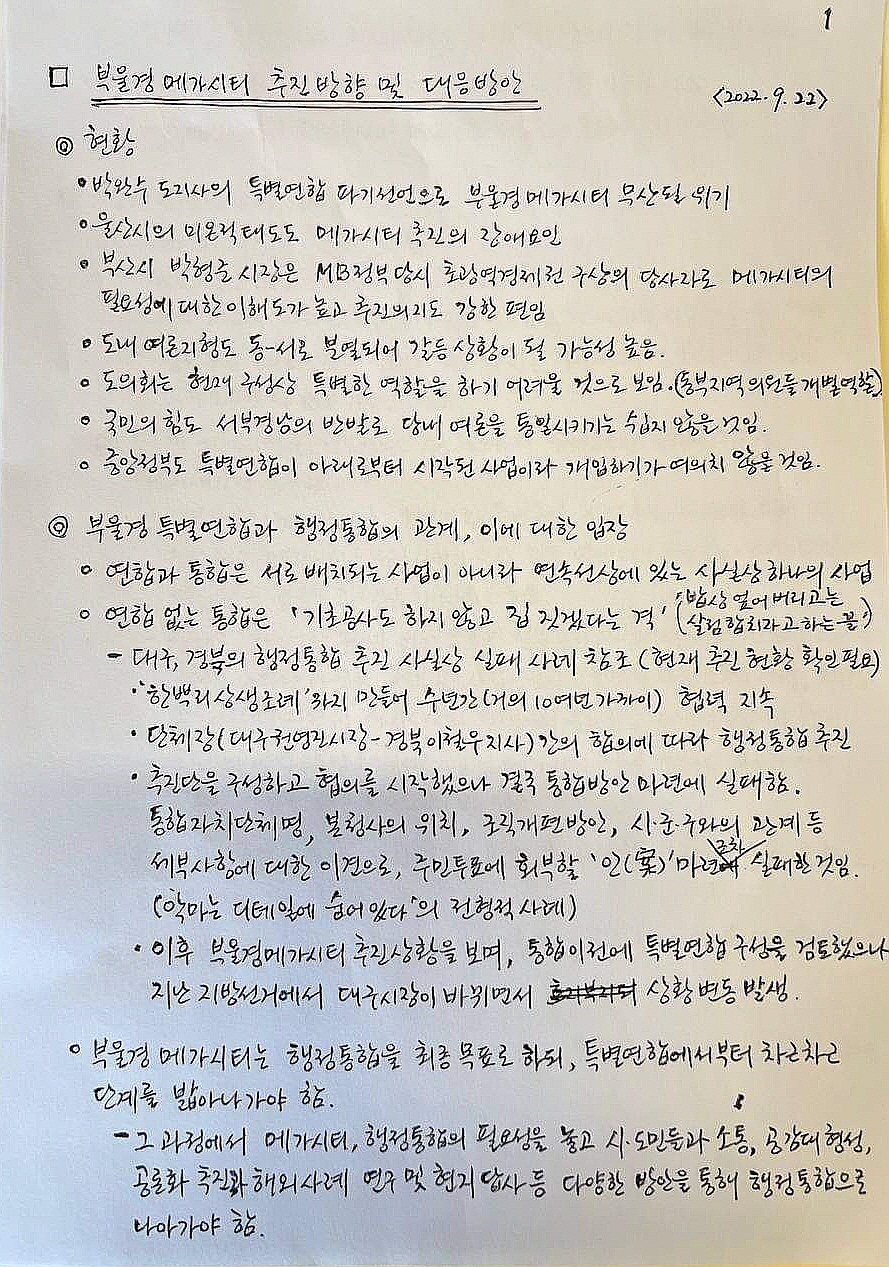 1
□ 부울경 메가시티 추진방향 및 대응방안
<2022. 9. 22>
◎ 현황
• 박완수 도지사의 특별연합 파기선언으로 부울경 메가시티 무산될 위기
• 울산시의 미온적 태도도 메가시티 추진의 장애요인
• 부산시 박형준 시장은 MB정부 당시 초광역경제권 구상의 당사자로 메가시티의
필요성에 대한 이해도가 높고 추진의지도 강한 편임
• 도내 여론지형도 동-서로 분열되어 갈등 상황이 될 가능성 높음.
• 도의회는 현재 구성상 특별한 역할을 하기 어려울 것으로 보임. (동부지역 의원들 개별역할)
• 국민의 힘도 서부경남의 반발로 당내 여론을 통일시키기는 쉽지 않을 것임.
• 중앙정부도 특별연합이 아래로부터 시작된 사업이라 개입하기가 여의치 않을 것임.
◎ 부울경 특별연합과 행정통합의 관계, 이에 대한 입장
• 연합과 통합은 서로 배치되는 사업이 아니라 연속선상에 있는 사실상 하나의 사업
• 연합 없는 통합은 '기초공사도 하지 않고 집 짓겠다는 격' ('밥상 엎어 버리고는
살림 합치자고 하는 꼴')
- 대구, 경북의 행정통합 추진 사실상 실패 사례 참조 (현재 추진 현황 확인 필요)
• '한뿌리상생조례'까지 만들어 수년간(거의 10여년 가까이) 협력 지속
• 단체장(대구 권영진시장-경북 이철우지사)간의 합의에 따라 행정통합 추진
• 추진단을 구성하고 협의를 시작했으나 결국 통합방안 마련에 실패함.
통합자치단체명, 본청사의 위치, 조직개편방안, 시·군·구와의 관계 등
세부사항에 대한 이견으로, 주민투표에 회부할 '안(案)' 마련조차 실패한 것임.
('악마는 디테일에 숨어있다'의 전형적 사례)
• 이후 부울경메가시티 추진상황을 보며, 통합 이전에 특별연합 구성을 검토했으나
지난 지방선거에서 대구시장이 바뀌면서 상황 변동 발생.
• 부울경 메가시티는 행정통합을 최종 목표로 하되, 특별연합에서부터 차근차근
단계를 밟아나가야 함.
- 그 과정에서 메가시티, 행정통합의 필요성을 놓고 시·도민들과 소통, 공감대 형성,
공론화 추진과 해외사례 연구 및 현지 답사 등 다양한 방안을 통해 행정통합으로
나아가야 함.